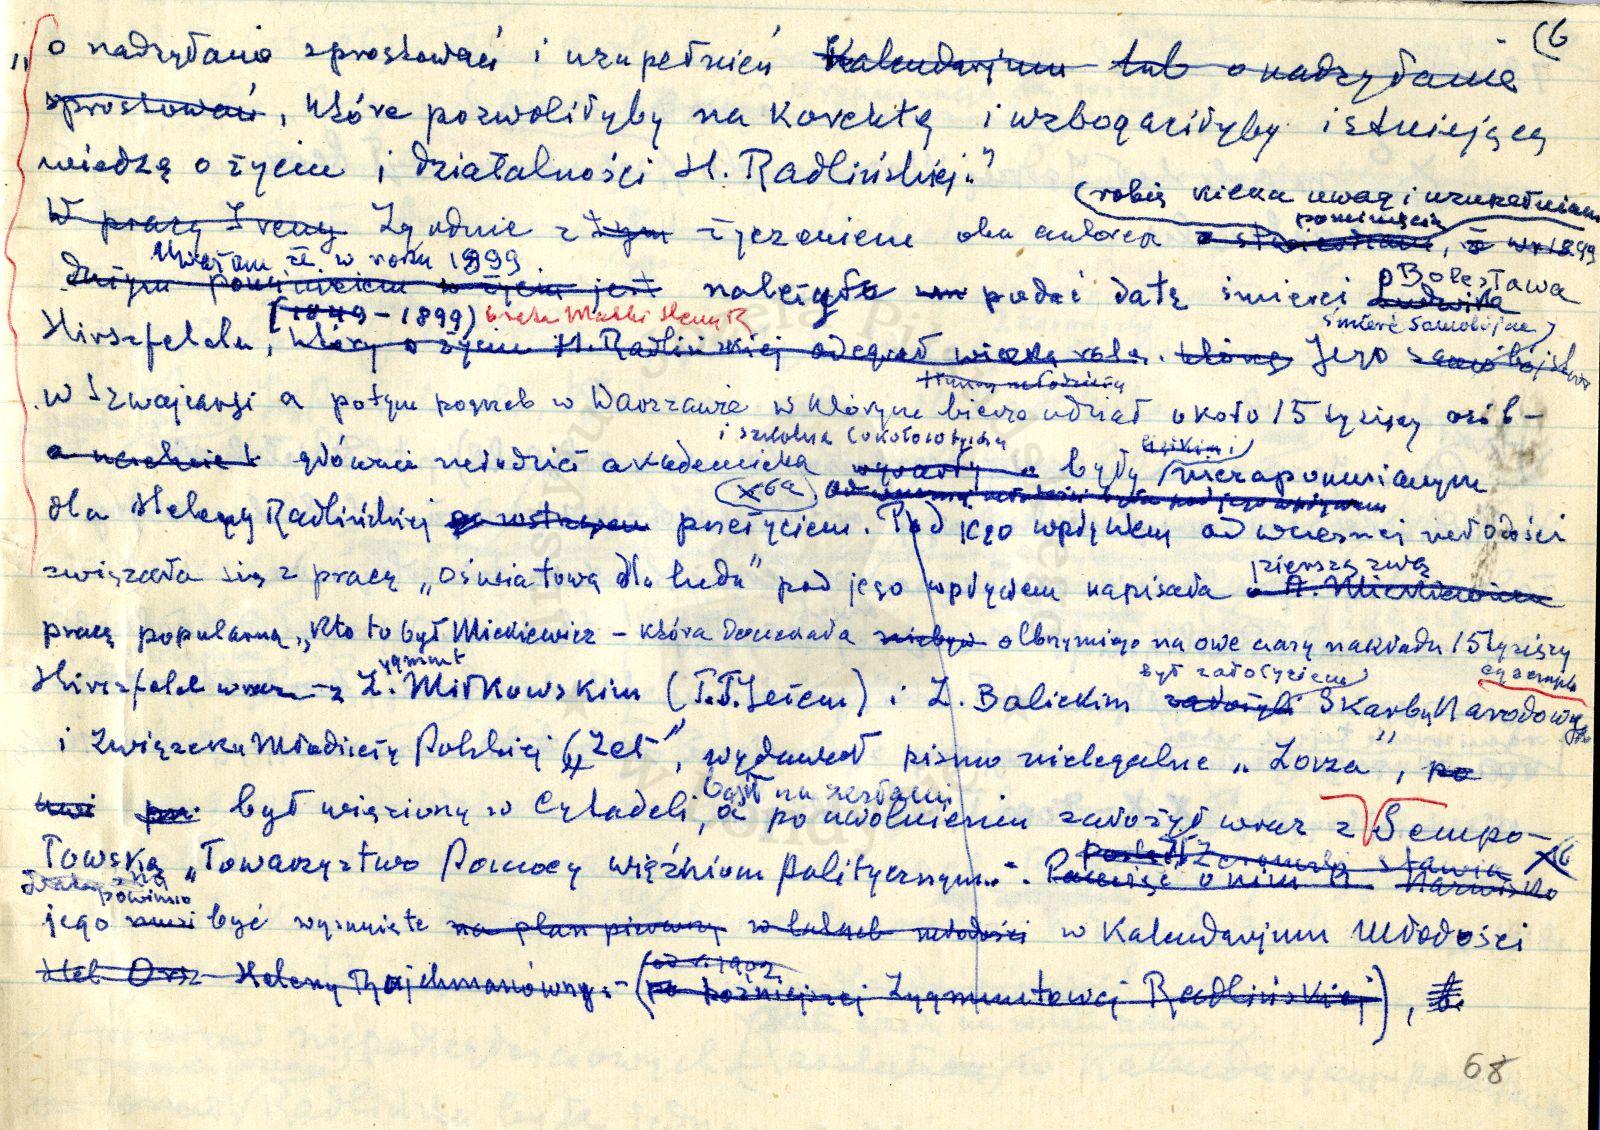 (6
„o nadsyłanie sprostowań i uzupełnień Kalendarjum lub o nadsyłanie
sprostowań, które pozwoliłyby na korektę i wzbogaciłyby istniejącą
wiedzę o życiu i działalności H. Radlińskiej."
(robię kilka uwag i uzupełnień
W pracy Ireny Zgodnie z tym życzeniem obu autorek pominięcia w r 1899
Uważam że w roku 1899
Dużym pominięciem w życiu jest należyło podać datę śmierci Bolesława
(1849 – 1899) brata Matki Heleny R śmierć samobójcza)
Hirszfelda, który w życiu H. Radlińskiej odegrał wielką rolę. którą Jego samobójstwo
w Szwajcarji a potym pogrzeb w Warszawie w którym bierze udział około 15 tysięcy osób –
tłumy młodzieży
i szkolna
głównie młodzież akademicka były niezapomnianym
(x6a) od wczesnej młodości była pod jego wpływem
dla Heleny Radlińskiej przeżyciem. Pod jego wpływem od wczesnej młodości
związała się z pracą „oświatową dla ludu" pod jego wpływem napisała o A. Mickiewiczu
pierwszą swą
pracę popularną „Kto to był Mickiewicz – która doczekała olbrzymiego na owe czasy nakładu 15 tysięcy
ygmunt był założycielem egzempl
Hirszfeld wraz z Z. Miłkowskim (T.T. Jeżem) i Z. Balickim założyli Skarbu Narodowego
i Związku Młodzieży Polskiej („Zet", wydawał pismo nielegalne „Zorza", po
był na zesłaniu
był więziony w Cytadeli, a po uwolnieniu założył wraz z Sempo-
łowską „Towarzystwo Pomocy więźniom politycznym". Pamięć o nim Żeromski stawia x6
Nazwisko
powinno
jego musi być wysunięte na plan pierwszy w latach młodości w Kalendarjum Młodości
od r. 1902
Hel Orsz Heleny Rajchmanówny – (po późniejszej Zygmuntowej Radlińskiej),
68